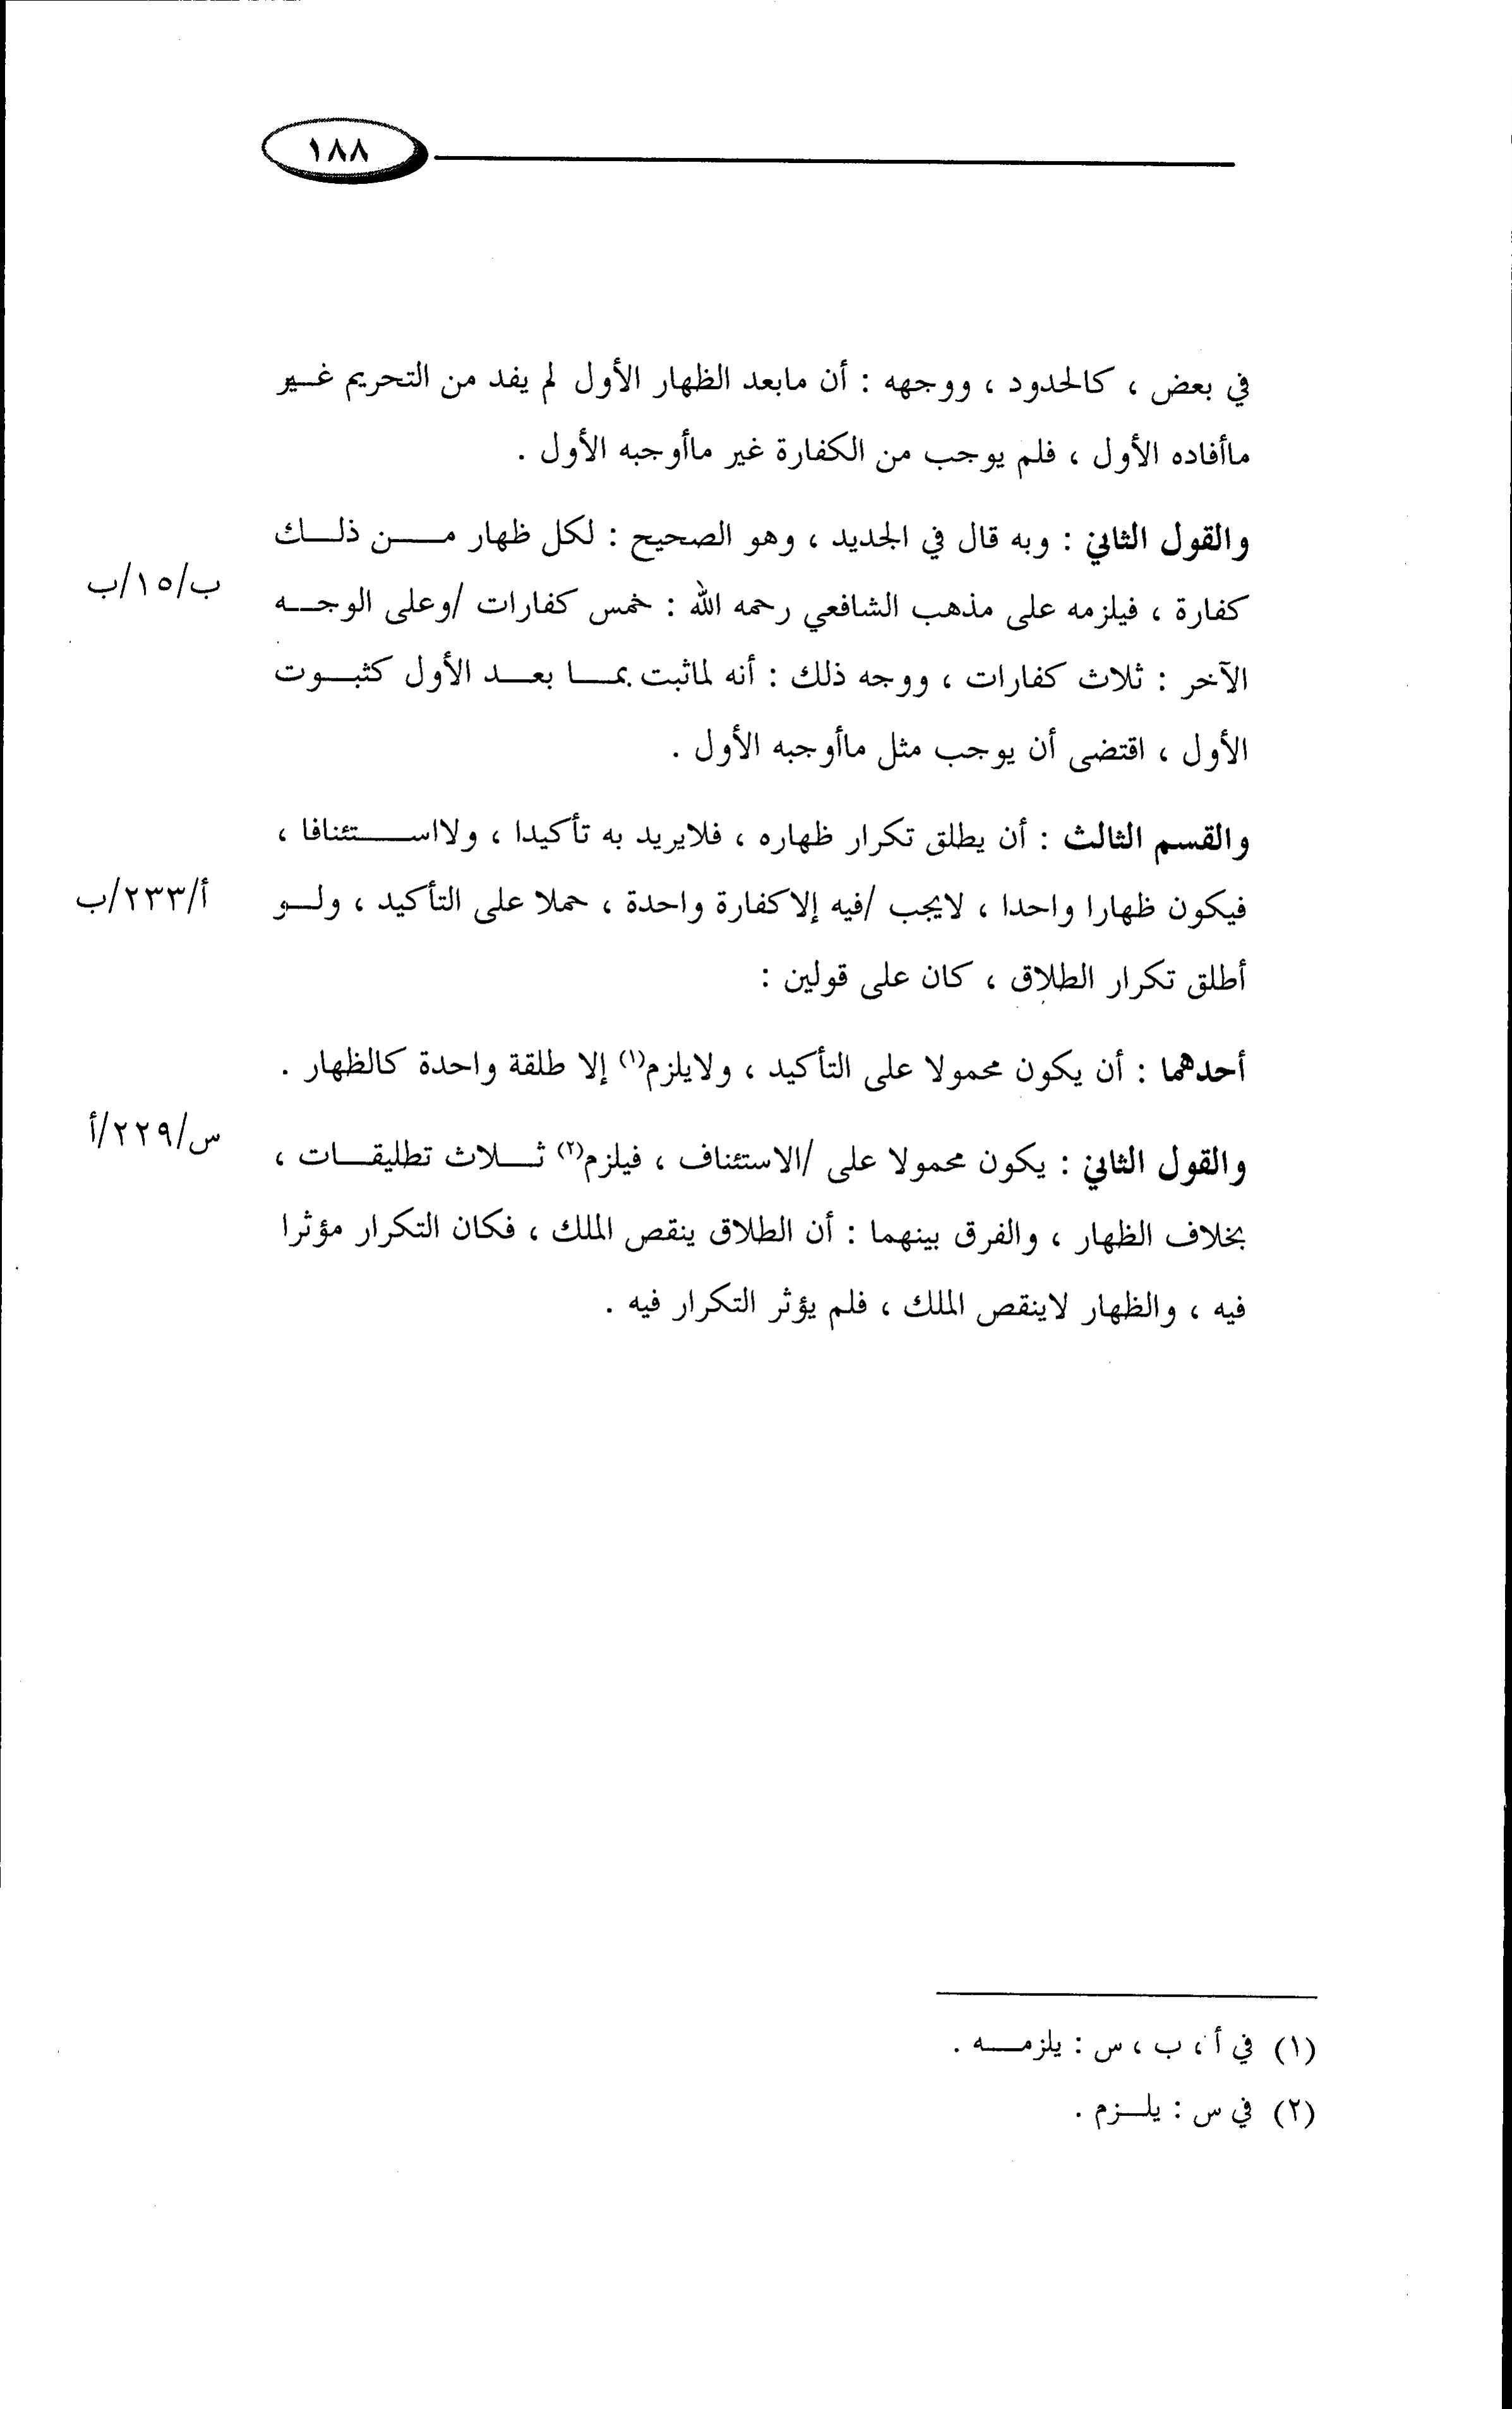 ١٨٨
في بعض ، كالحدود ، ووجهه : أن مابعد الظهار الأول لم يفد من التحريم غير
ماأفاده الأول ، فلم يوجب من الكفارة غير ماأوجبه الأول .
والقول الثاني : وبه قال في الجديد ، وهو الصحيح : لكل ظهار من ذلك
ب/١٥/ب
كفارة ، فيلزمه على مذهب الشافعي رحمه الله : خمس كفارات /وعلى الوجه
الآخر : ثلاث كفارات ، ووجه ذلك : أنه لماثبت بما بعد الأول كثبوت
الأول ، اقتضى أن يوجب مثل ماأوجبه الأول .
والقسم الثالث : أن يطلق تكرار ظهاره ، فلايريد به تأكيدا ، ولااستئنافا ،
فيكون ظهارا واحدا ، لايجب /فيه إلاكفارة واحدة ، حملا على التأكيد ، ولو
أ/٢٣٣/ب
أطلق تكرار الطلاق ، كان على قولين :
أحدهما : أن يكون محمولا على التأكيد ، ولايلزم(١) إلا طلقة واحدة كالظهار .
والقول الثاني : يكون محمولا على /الاستئناف ، فيلزم(٢) ثلاث تطليقات ،
س/٢٢٩/أ
بخلاف الظهار ، والفرق بينهما : أن الطلاق ينقص الملك ، فكان التكرار مؤثرا
فيه ، والظهار لاينقص الملك ، فلم يؤثر التكرار فيه .
(١) في أ ، ب ، س : يلزمه .
(٢) في س : يلزم .